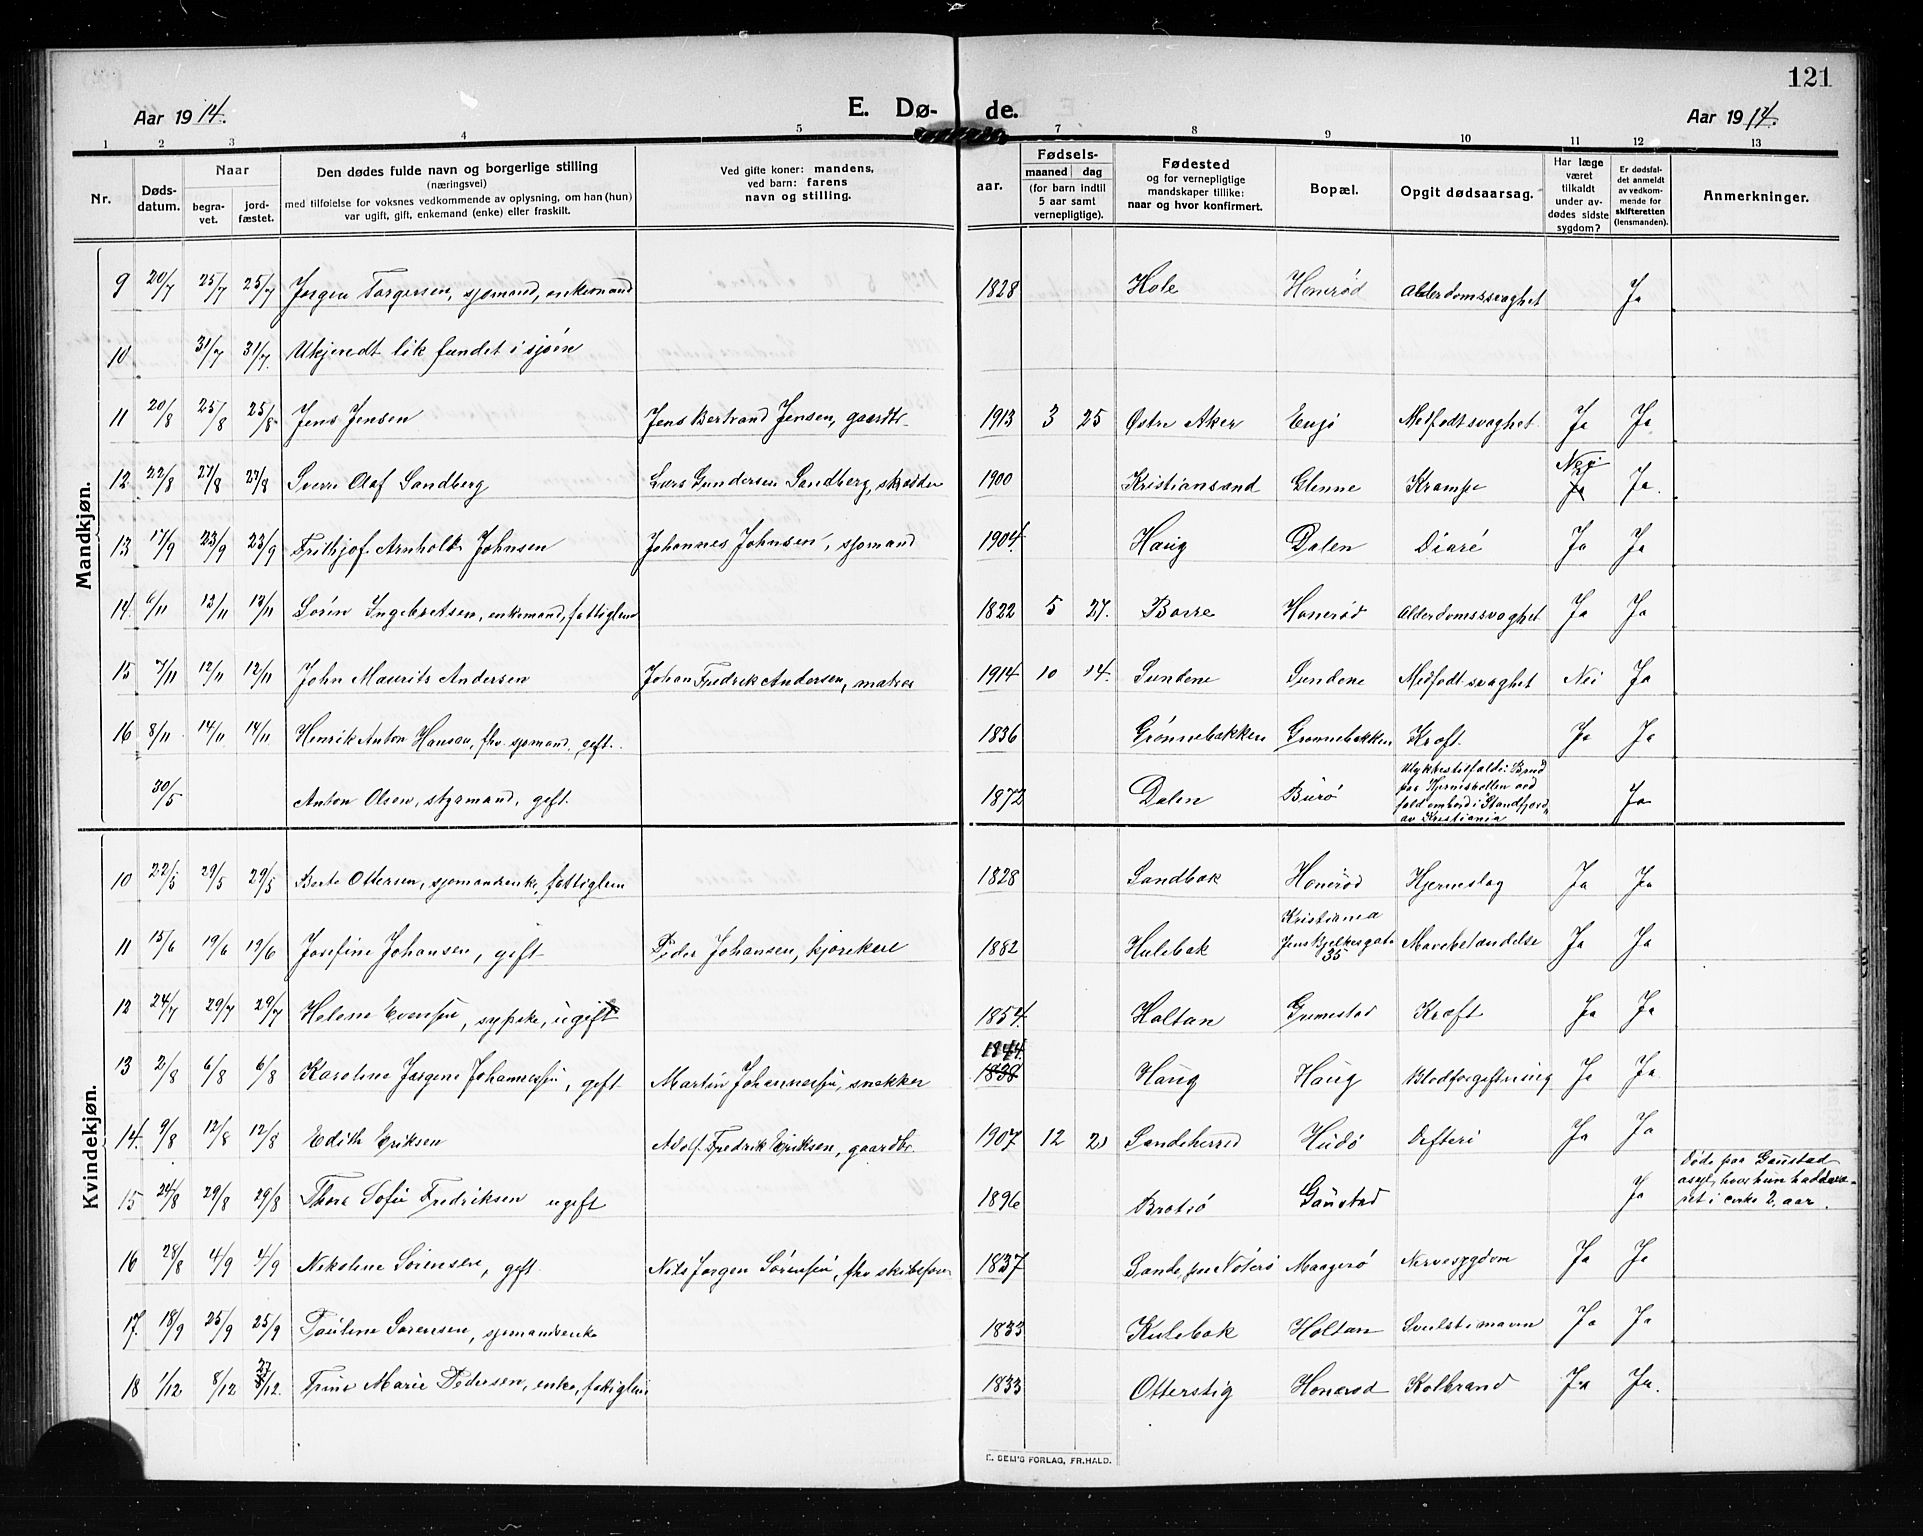 121
Aar 1914.
E. Dø-
de.
Aar 1914.
1 2 3 4 5 7 8 9 10 11 12 13
Nr.
Døds-
datum.
Naar
begra-
vet.
jord-
fæstet.
Den dødes fulde navn og borgerlige stilling
(næringsvei)
med tilføielse for voksnes vedkommende av oplysning, om han (hun)
var ugift, gift, enkemand (enke) eller fraskilt.
Ved gifte koner: mandens,
ved barn: farens
navn og stilling.
aar.
Fødsels-
maaned dag
(for barn indtil
5 aar samt
vernepligtige).
Fødested
og for vernepligtige
mandskaper tillike:
naar og hvor konfirmert.
Bopæl.
Opgit dødsaarsag.
Har læge
været
tilkaldt
under av-
dødes sidste
sygdom?
Er dødsfal-
det anmeldt
av vedkom-
mende for
skifteretten
(lensmanden).
Anmerkninger.
Mandkjøn.
9 20/7 25/7 25/7 Jørgen Torgersen, sjømand, enkemand 1828 Hole Honerød Alderdomssvaghet Ja
10 31/7 31/7. Ukjendt lik fundet i sjøen
11 20/8 25/8 25/8. Jens Jensen Jens Bertrand Jensen, gaardbr. 1913 3 25 Østre Aker Engø Medfødt svaghet. Ja Ja
12 22/8 27/8 27/8 Sverre Olaf Sandberg Lars Gundersen Sandberg, skrædder 1900 Kristiansand Glenne Krampe Nei Ja Ja.
13 17/9 23/9 23/9 Frithjof Arnholdt Johnsen Johannes Johnsen, sjømand 1904. Haug Dalen Diaré Ja Ja
14. 6/11 12/11 12/11 Sørin Ingebretsen, enkemand, fattiglem 1822 5 27. Borre Honerød Alderdomssvaghet Ja Ja
15 7/11 12/11 12/11 John Maurits Andersen Johan Fredrik Andersen, matros 1914 10 14. Sundene Sundene Medfødt svaghet Nei Ja
16 8/11 14/11 14/11 Henrik Anton Hansen, fhv. sjømand, gift. 1836 Grønnebakken Grønnebakken Kræft. Ja Ja
30/5 Anton Olsen, styrmand, gift. 1872 Dalen Burø Ulykkestilfælde: Brud
paa Hjerneskallen ved
fald ombord i "Strandfjord"
av Kristiania Ja
Kvindekjøn.
10 22/5 29/5 29/5 Berte Ottersen, sjømandsenke, fattiglem 1828 Sandbæk Honerød Hjerneslag Ja Ja
11 15/6 19/6 19/6 Josefine Johansen, gift Peder Johansen, kjørekar 1882 Hulebak Kristiania
Jens Bjelkesgate
35 Mavebetændelse Ja Ja
12 24/7 29/7 29/7 Helene Evensen, sypike, ugift 1854. Holtan Grimestad Kræft Ja Ja
13 2/8 6/8 6/8 Karoline Jørgine Johannessen, gift Martin Johannessen, snekker 1844. 1838 Haug Haug Blodforgiftning Ja Ja
14. 9/8 12/8 12/8 Edith Eriksen Adolf Fredrik Eriksen, gaardbr. 1907 12 21 Sandeherred Hudø Difteri Ja Ja
15 24/8 29/8 29/8 Thora Sofie Fredriksen ugift 1896 Bratiø Gaustad Ja Døde paa Gaustad
asyl, hvor hun hadde væ-
ret i cirka 2. aar.
16 28/8 4/9 4/9 Nikoline Sørensen, gift Nils Jørgen Sørensen, fhv. skibsfører 1837 Sande, paa Nøterø Maagerø Nervesygdom Ja Ja
17. 18/9 25/9 25/9 Pauline Sørensen, sjømandsenke 1833 Hulebak Holtan Svulst i maven Ja Ja
18 1/12 8/12 27/12. Trine Marie Pedersen, enke, fattiglem 1833 Otterstig Honerød Kolbrand Ja Ja.
E. SEM'S FORLAG, FR.HALD.